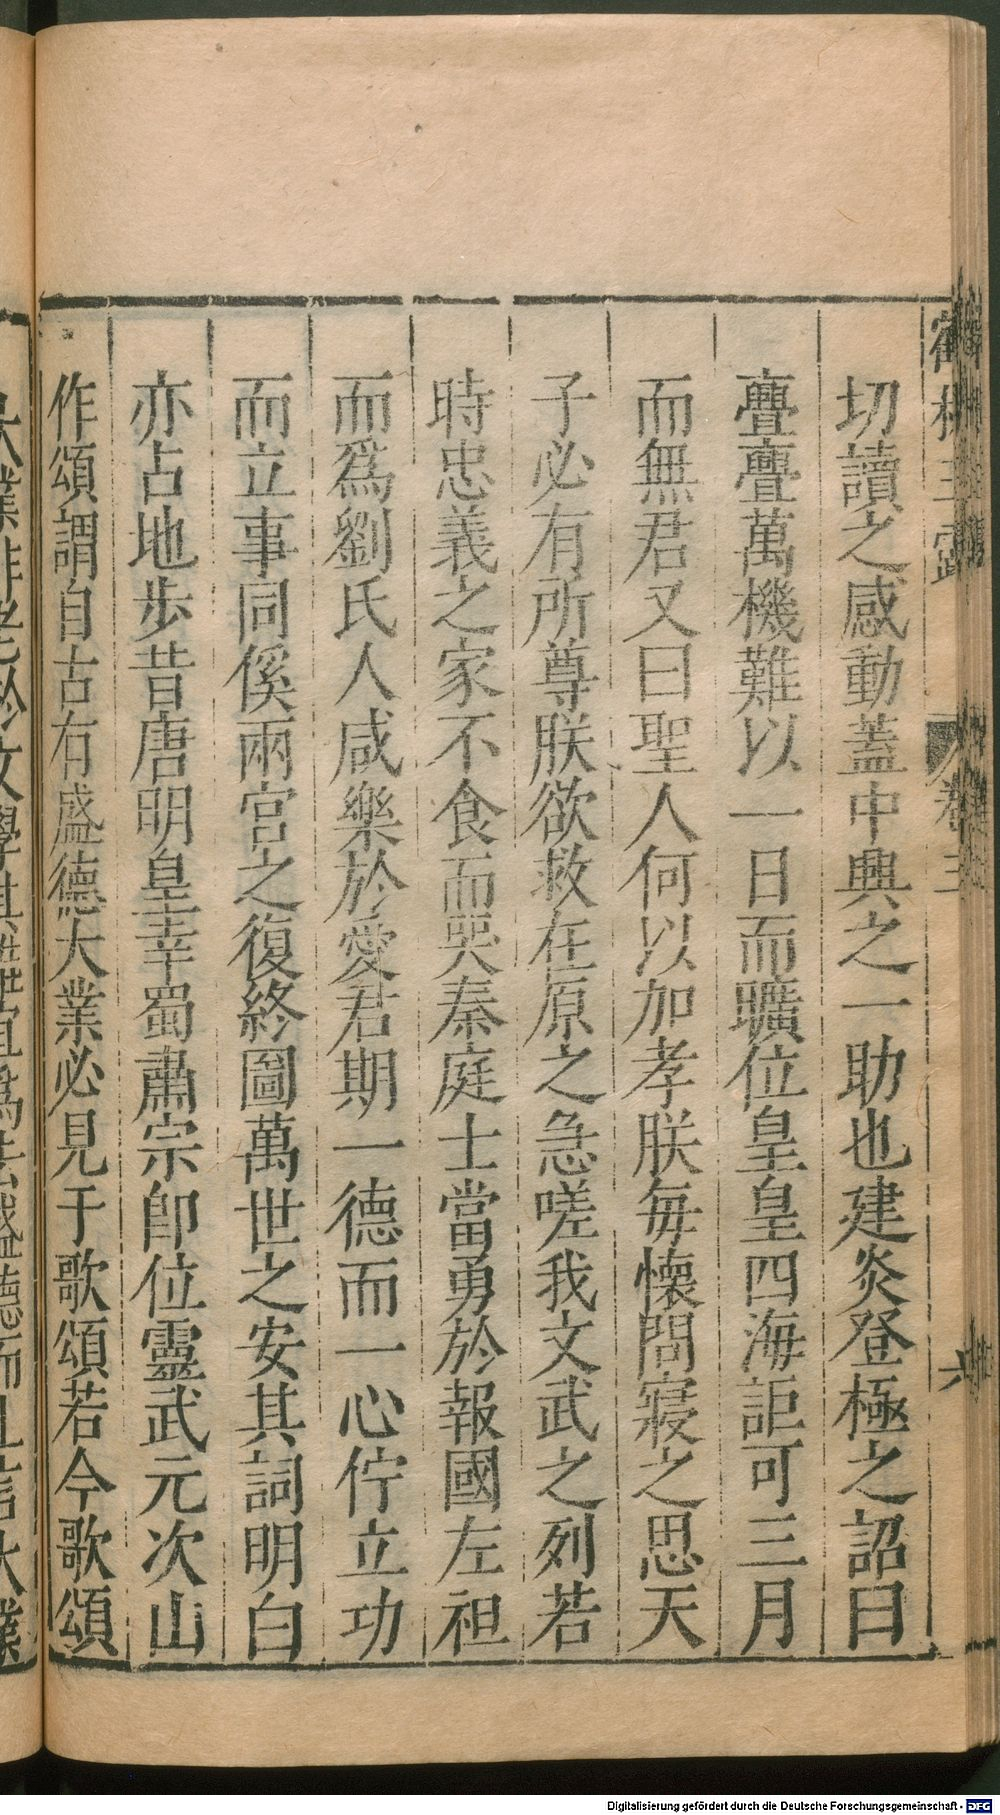 切讀之感動蓋中興之一助也建炎登極之詔曰
亹亹萬機難以一日而曠位皇皇四海詎可三月
而無君又曰聖人何以加孝朕每懷問寢之思天
子必有所尊朕欲救在原之急嗟我文武之列若
時忠義之家不食而哭秦庭士當勇於報國左袒
而爲劉氏人咸樂於愛君期一德而一心佇立功
而立事同徯兩宮之復終圖萬世之安其詞明白
亦占地步昔唐明皇幸蜀肅宗卽位靈武元次山
作頌謂自古有盛德大業必見于歌頌若今歌頌
Digitalisierung gefördert durch die Deutsche Forschungsgemeinschaft - DFG